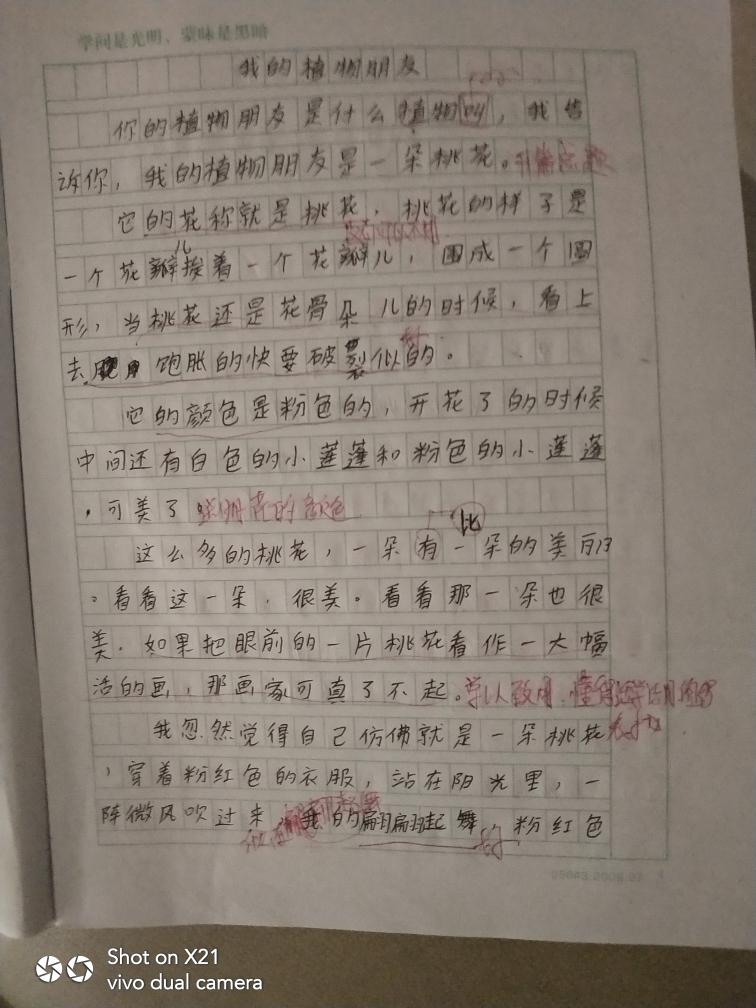 学问是光明，蒙昧是黑暗
我的植物朋友
你的植物朋友是什么植物叫，我告
诉你，我的植物朋友是一朵桃花。开篇点题
它的花称就是桃花，桃花的样子是
一个花瓣儿挨着一个花瓣儿，围成一个圆
形，当桃花还是花骨朵儿的时候，看上
去 饱胀的快要破裂似的。
它的颜色是粉色的，开花了的时候
中间还有白色的小莲蓬和粉色的小莲蓬
，可美了
这么多的桃花，一朵有一朵的美丽
比
。看看这一朵，很美。看看那一朵也很
美。如果把眼前的一片桃花看作一大幅
活的画，那画家可真了不起。学以致用，懂得
我忽然觉得自己仿佛就是一朵桃花
，穿着粉红色的衣服，站在阳光里，一
阵微风吹过来 我的翩翩起舞，粉红色
好
05043.2008.07
Shot on X21
vivo dual camera